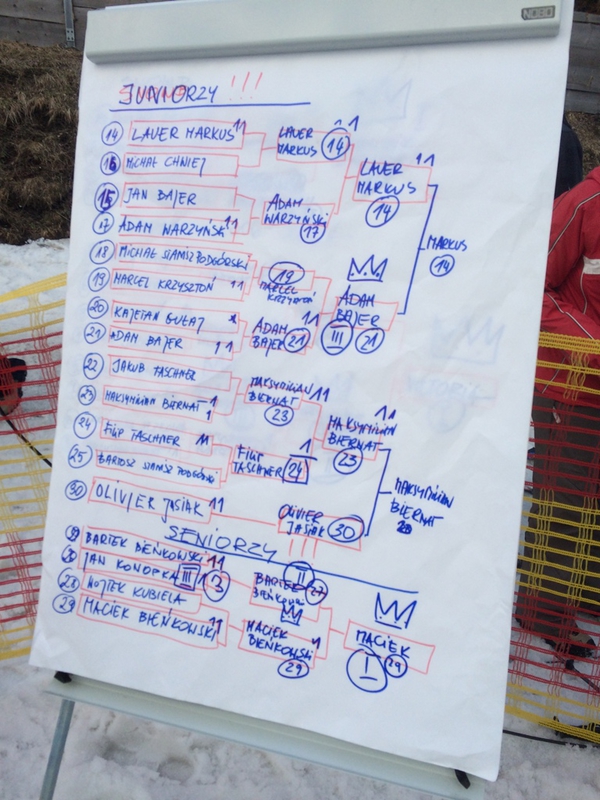 NOBO
JUNIORZY !!!
14 LAUER MARKUS 11
16 MICHAŁ CHNIEJ
15 JAN BAJER
17 ADAM WARZYŃSKI 11
18 MICHAŁ SIAMISZ PODGÓRSKI
19 MARCEL KRZYSZTOŃ 11
20 KAJETAN GUŁAJ
21 ADAM BAJER 11
22 JAKUB TASCHNER
23 MAKSYMILIAN BIERNAT 1
1
24 FILIP TASCHNER 11
25 BARTOSZ SIAMISZ PODGÓRSKI
30 OLIVIER JASIAK 11
LAUER 11
MARKUS 14
ADAM
WARZYŃSKI
17
19
MARCEL
KRZYSZTOŃ
ADAM 11
BAJER 21
MAKSYMILIAN 11
BIERNAT
23
FILIP 1
TASCHNER 24
OLIVIER
JASIAK 30
LAUER 11
MARKUS
14
ADAM
BAJER
III 21
MAKSYMILIAN 11
BIERNAT
23
MARKUS
14
MAKSYMILIAN
BIERNAT
SENIORZY !!!
BARTEK BIEŃKOWSKI 11
JAN KONOPKA III 13
28 WOJTEK KUBIELA
29 MACIEK BIEŃKOWSKI 11
II
BARTEK 27
MACIEK
BIEŃKOWSKI 11
29
MACIEK
I 29